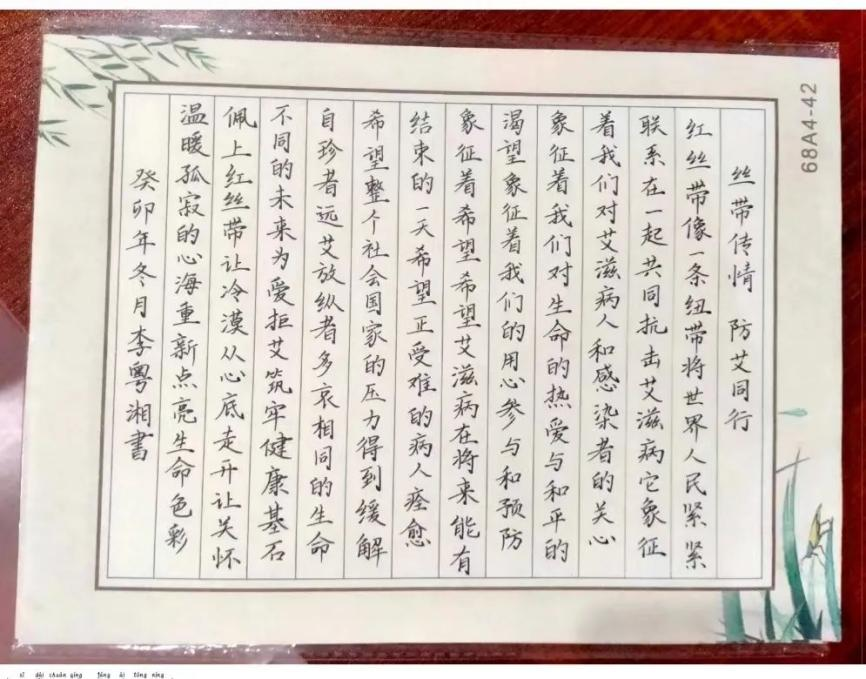 68A4-42
丝带传情 防艾同行
红丝带像一条纽带将世界人民紧紧
联系在一起共同抗击艾滋病它象征
着我们对艾滋病人和感染者的关心
象征着我们对生命的热爱与和平的
渴望象征着我们的用心参与和预防
象征着希望希望艾滋病在将来能有
结束的一天希望正受难的病人痊愈
希望整个社会国家的压力得到缓解
自珍者远艾放纵者多哀相同的生命
不同的未来为爱拒艾筑牢健康基石
佩上红丝带让冷漠从心底走开让关怀
温暖孤寂的心海重新点亮生命色彩
癸卯年冬月李粤湘書
sī dài chuán qíng fáng ài tóng xíng